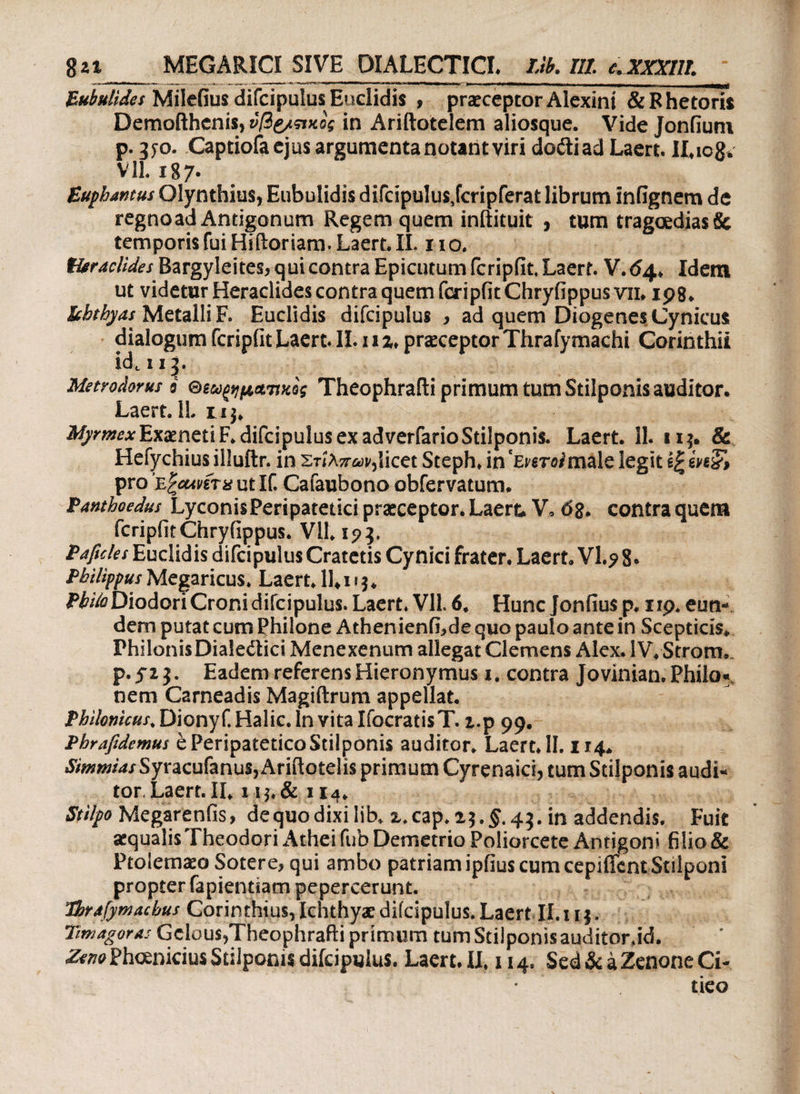 821 MEGARICI SIVE DIALECTICI. Lib. III. c. XXXIII.
Eubulides Milesius discipulus Euclidis , præceptor Alexini & Rhetoris
Demosthenis, ὑβριστικὸς in Aristotelem aliosque. Vide Jonsium
p. 350. Captiosa ejus argumenta notant viri docti ad Laert. II, 108.
VII. 187.
Euphantus Olynthius, Eubulidis discipulus, scripserat librum insignem de
regno ad Antigonum Regem quem instituit , tum tragœdias &
temporis sui Historiam. Laert. II. 110.
Heraclides Bargyleites, qui contra Epicutum scripsit. Laert. V. 64. Idem
ut videtur Heraclides contra quem scripsit Chrysippus VII. 198.
Ichthyas Metalli F. Euclidis discipulus , ad quem Diogenes Cynicus
dialogum scripsit Laert. II. 112, præceptor Thrasymachi Corinthii
id. 113.
Metrodorus ὁ Θεωρηματικὸς Theophrasti primum tum Stilponis auditor.
Laert. II. 113.
Myrmex Exæneti F. discipulus ex adversario Stilponis. Laert. II. 113. &
Hesychius illustr. in Στίλπων, licet Steph. in Ἐνετοὶ male legit ἐξ
pro Ἐξαινέτου ut Is. Casaubono observatum.
Panthoedus Lyconis Peripatetici præceptor. Laert. V. 68. contra quem
scripsit Chrysippus. VII. 193.
Pasicles Euclidis discipulus Cratetis Cynici frater. Laert. VI. 98.
Philippus Megaricus. Laert. II. 113.
Philo Diodori Croni discipulus. Laert. VII. 6. Hunc Jonsius p. 119. eun-
dem putat cum Philone Atheniensi, de quo paulo ante in Scepticis.
Philonis Dialectici Menexenum allegat Clemens Alex. IV. Strom.
p. 523. Eadem referens Hieronymus 1. contra Jovinian. Philo-
nem Carneadis Magistrum appellat.
Philonicus. Dionys. Halic. In vita Isocratis T. 2. p 99.
Phrasidemus è Peripatetico Stilponis auditor. Laert. II. 114.
Simmias Syracusanus, Aristotelis primum Cyrenaici, tum Stilponis audi-
tor. Laert. II. 113. & 114.
Stilpo Megarensis, de quo dixi lib. 2. cap. 23. §. 43. in addendis. Fuit
æqualis Theodori Athei sub Demetrio Poliorcete Antigoni filio &
Ptolemæo Sotere, qui ambo patriam ipsius cum cepissent Stilponi
propter sapientiam pepercerunt.
Thrasymachus Corinthius, Ichthyæ discipulus. Laert II. 113.
Timagoras Gelous, Theophrasti primum tum Stilponis auditor, id.
Zeno Phœnicius Stilponis discipulus. Laert. II, 114. Sed & à Zenone Ci-
tieo